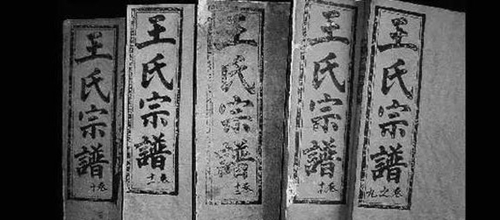 王氏宗譜
王氏宗譜
卷十一
王氏宗譜
王氏宗譜
王氏宗譜
卷之九